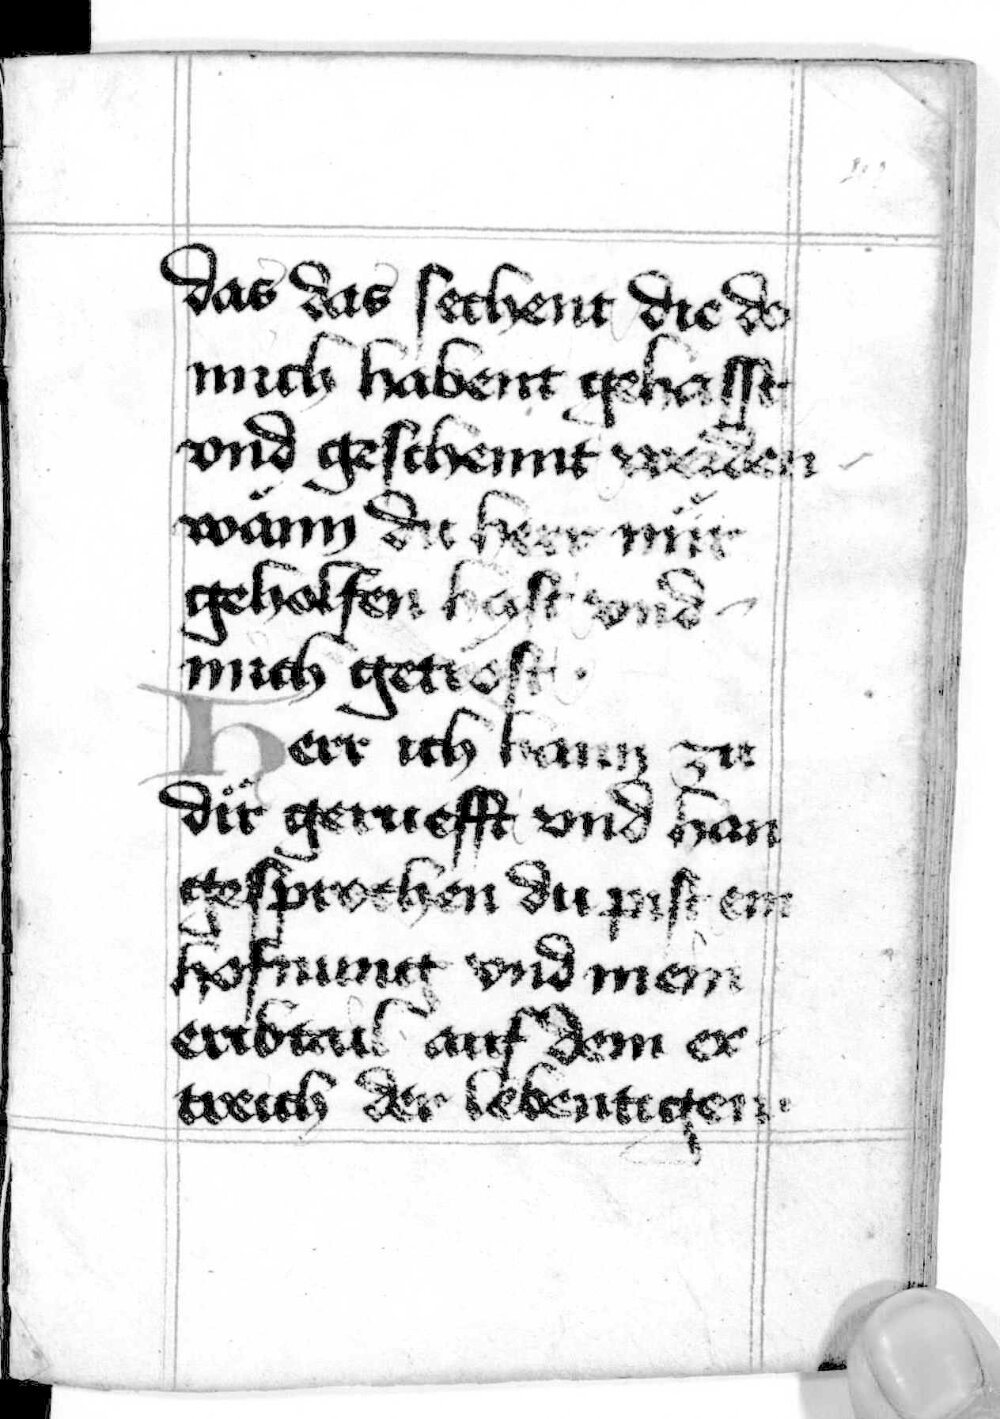 das das sechent die do
mich habent gehasst
vnd geschennt werden
wann du herr mir
geholfen hast vnd
mich getrost .
Herr ich hann zu
dir geruefft vnd han
gesprochen du pist ein
hofnung vnd mein
eribtail auf dem er
treich der lebentigen